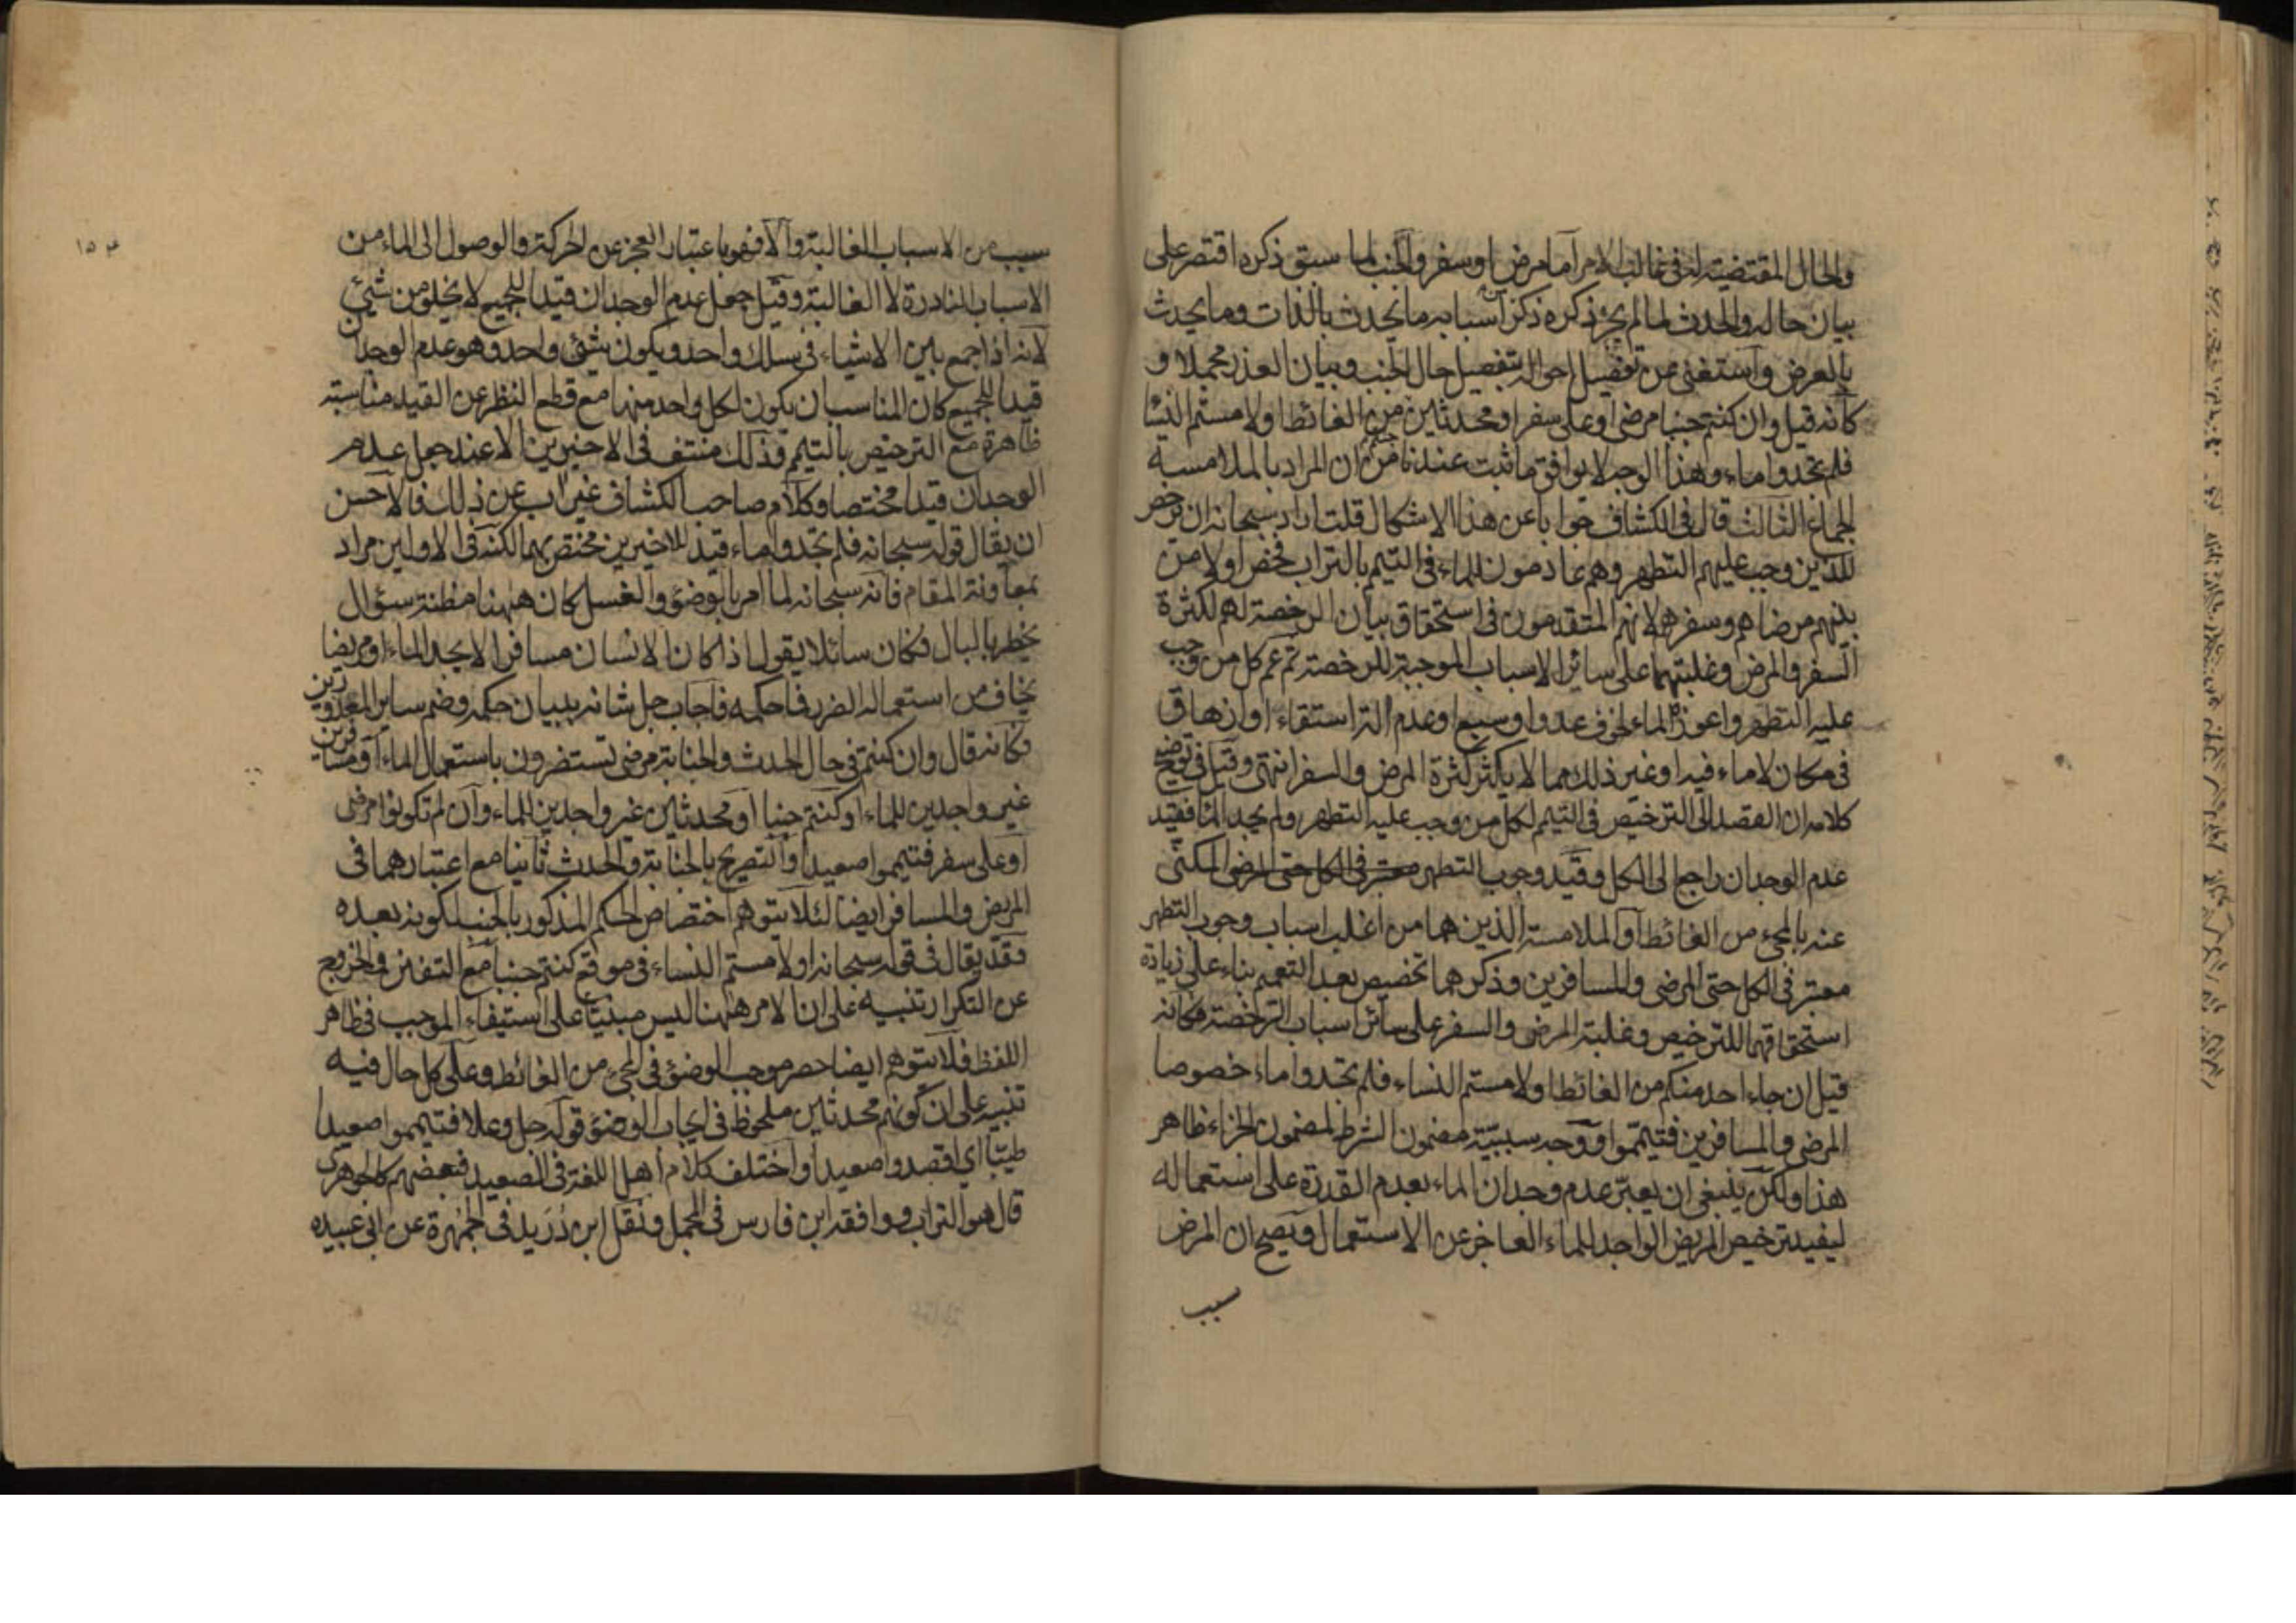 والحال المقتضية له في غالب الامر اما مرض او سفر والجنب لما سبق ذكره اقتصر على
بيان حاله والحدث لما لم يجر ذكره ذكر اسبابه ما يحدث بالذات وما يحدث
بالعرض واستغنى عن تفصيل احواله بتفصيل حال الجنب وبيان العذر مجملا و
كأنه قيل وان كنتم جنبا مرضى او على سفر او محدثين جئتم من الغائط او لامستم النسا
فلم تجدوا ماء وهذا الوجه لا يوافق ما ثبت عندنا من ان المراد بالملامسة
الجماع الثالث قال في الكشاف جوابا عن هذا الاشكال قلت اراد سبحانه ان يرخص
للذين وجب عليهم التطهر وهم عادمون للماء في التيمم بالتراب فخص اولا من
بينهم مرضاهم وسفرهم لانهم المتقدمون في استحقاق بيان الرخصة لهم لكثرة
السفر والمرض وغلبتهما على سائر الاسباب الموجبة للرخصة ثم عم كل من وجب
عليه التطهر واعوزه الماء لخوف عدو او سبع او عدم الة استقاء او ارهاق
في مكان لا ماء فيه او غير ذلك مما لا يكثر كثرة المرض والسفر انتهى وقيل في توضيح
كلامه ان القصد الى الترخيص في التيمم لكل من وجب عليه التطهر ولم يجد الماء فقيد
عدم الوجدان راجع الى الكل وقيد وجوب التطهر معتبر في الكل حتى المرضى المكنى
عنه بالمجيء من الغائط او الملامسة الذين هما من اغلب اسباب وجوب التطهر
معتبر في الكل حتى المرضى والمسافرين وذكرهما تخصيص بعد التعميم بناء على زيادة
استحقاقهما للترخيص وغلبة المرض والسفر على سائر اسباب الرخصة فكانه
قيل ان جاء احد منكم من الغائط او لامستم النساء فلم تجدوا ماء خصوصا
المرضى والمسافرين فتيمموا ووجه سببية مضمون الشرط لمضمون الجزاء ظاهر
هذا ولكن ينبغي ان يعبر عدم وجدان الماء بعدم القدرة على استعماله
ليفيد ترخيص المريض الواجد للماء العاجز عن الاستعمال ويصح ان المرض
سبب
١٥٣
سبب من الاسباب الغالبة والا فهو باعتبار العجز عن الحركة والوصول الى الماء من
الاسباب النادرة لا الغالبة وقيل جعل عدم الوجدان قيدا للجميع لا يخلو من شيء
لانه اذا جمع بين الاشياء في سلك واحد ويكون شيء واحد وهو عدم الوجدان
قيدا للجميع كان المناسب ان يكون لكل واحد منها مع قطع النظر عن القيد مناسبة
ظاهرة مع الترخيص بالتيمم وذلك منتف في الاخيرين الا عند جعل عدم
الوجدان قيدا مختصا وكلام صاحب الكشاف غير اب عن ذلك فالاحسن
ان يقال قوله سبحانه فلم تجدوا ماء قيد للاخيرين مختص بهما لكنه في الاولين مراد
بمعاونة المقام فانه سبحانه لما امر بالوضوء والغسل كان ههنا مظنة سؤال
يخطر بالبال فكان سائلا يقول اذا كان الانسان مسافرا لا يجد الماء او مريضا
يخاف من استعماله الضرر فما حكمه فاجاب جل شانه ببيان حكمه وضم ساير المعذورين
فكانه قال وان كنتم في حال الحدث والجنابة مرضى تستضرون باستعمال الماء او مسافرين
غير واجدين للماء او كنتم جنبا او محدثين غير واجدين للماء وان لم تكونوا مرضى
او على سفر فتيمموا صعيدا والتصريح بالجنابة والحدث ثانيا مع اعتبارهما في
المريض والمسافر ايضا لئلا يتوهم اختصاص الحكم المذكور بالجنب لكونه بعده
وقد يقال في قوله سبحانه او لامستم النساء في موقع كنتم جنبا مع التفنن والخروج
عن التكرار تنبيه على ان الامر ههنا ليس مبنيا على استيفاء الموجب في ظاهر
اللفظ فلا يتوهم ايضا حصر موجب الوضوء في المجيء من الغائط وعلى كل حال فيه
تنبيه على ان كونهم محدثين ملحوظ في ايجاب الوضوء قوله جل وعلا فتيمموا صعيدا
طيبا اي اقصدوا صعيدا واختلف كلام اهل اللغة في الصعيد فبعضهم كالجوهري
قال هو التراب ووافقه ابن فارس في المجمل ونقل ابن دريد في الجمهرة عن ابي عبيده